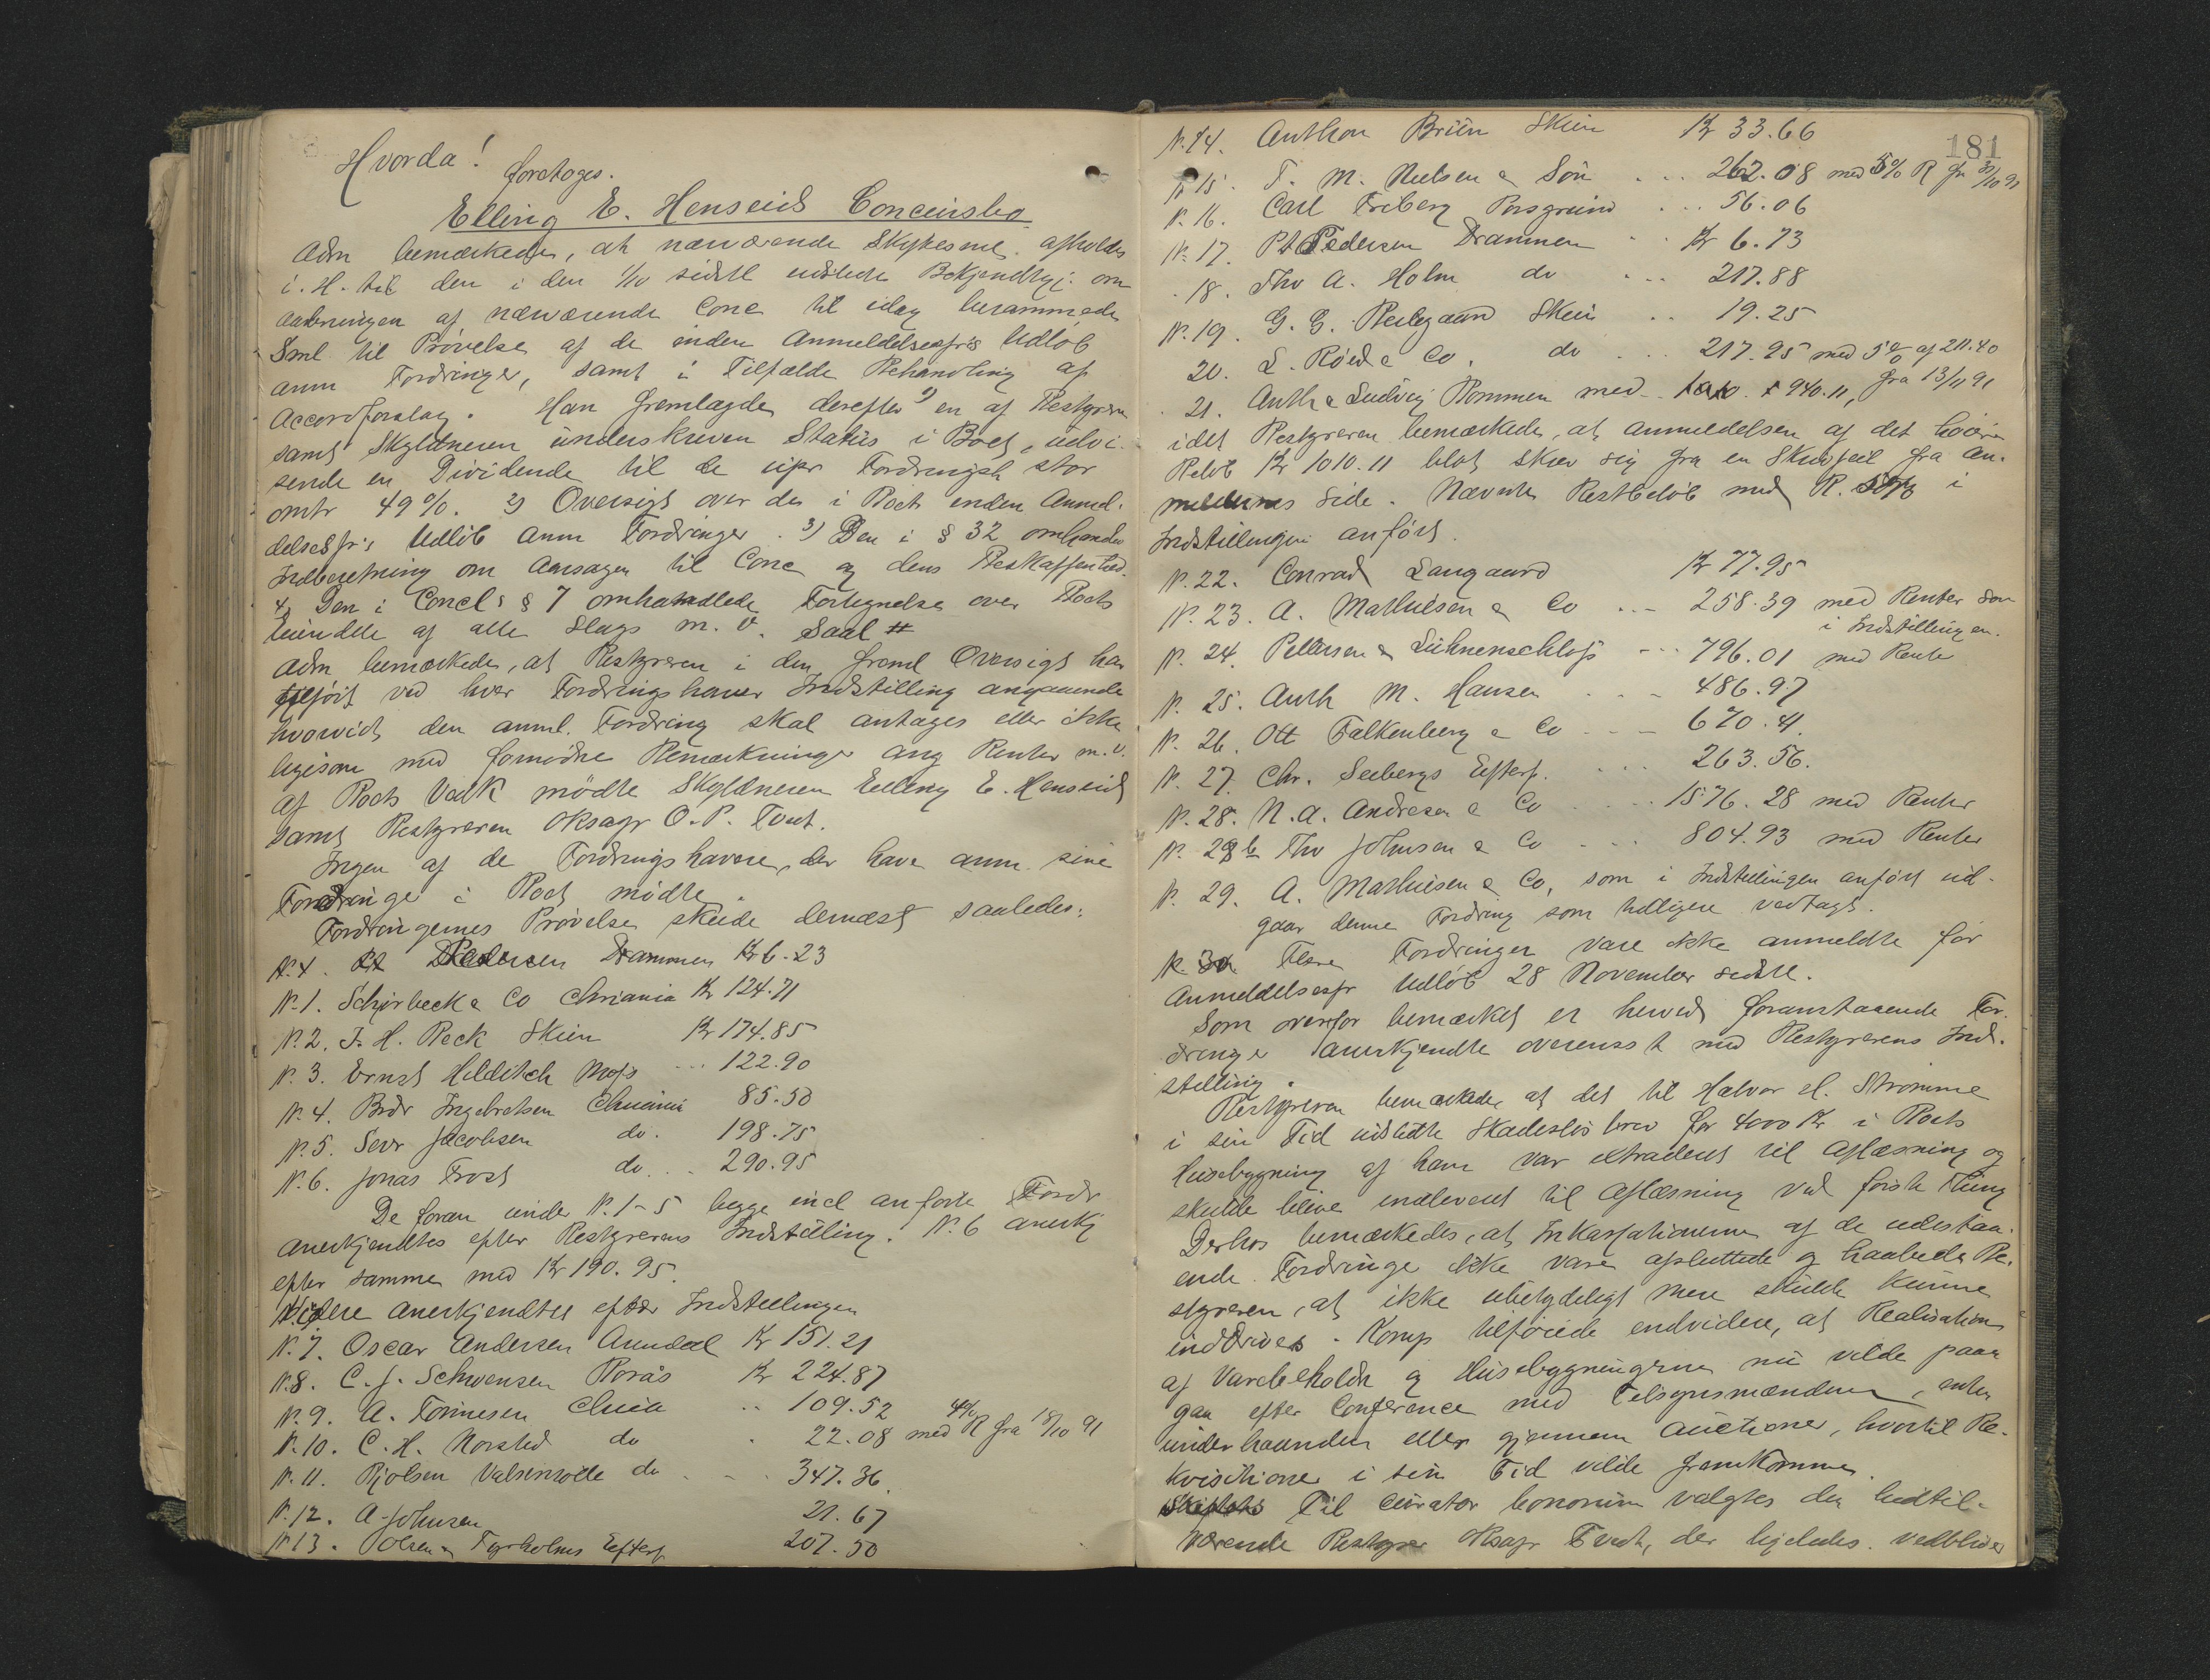 Hvorda!
foretoges.
Elling E. Henseids Concursbo
Adm bemærkedes, at nærværende Skiftesml. afholdes
i. H. til den i den 1/10 sidstl udstedte Bekjendtgj. om
Aabningen af nærværende Conc til idag berammede
Saml til Prøvelse af de inden Anmeldelsesfr's Udløb
anm Fordringer, samt i Tilfælde Behandling af
Accordforslag. Han fremlagde derefter 1) en af Bestyreren
samt Skyldneren underskreven Status i Boet, udvi-
sende en Dividende til de upr Fordringsh stor
omtr 49%. 2) Oversigt over de i Boet inden Anmel-
delsesfr's Udløb anm Fordringer. 3) Den i § 32 omhandlede
Indberetning om Aarsagen til Conc og dens Beskaffenhed.
4) Den i Concl's § 7 omhandlede Fortegnelse over Boets
Eiendele af alle Slags m. v. Saal #
Adm bemærkede, at Bestyreren i den freml Oversigt har
tilføiet ved hver Fordringshaver Indstilling angaaende
hvorvidt den anml. Fordring skal antages eller ikke
ligesom med fornødne Bemærkninger ang Renter m.v.
Af Boets Vedk mødte Skyldneren Elling E. Henseid
samt Bestyreren Oksagf O. P. Tvet.
Ingen af de Fordringshavere, der have anm. sine
Fordringe i Boet mødte.
Fordringernes Prøvelse skede dernæst saaledes:
N. 1. Pt Pedersen Drammen Kr 6.23
N. 1. Schjirbeck & Co Chriania Kr 124.71
N. 2. J. H. Beck Skien Kr 174.85
N. 3. Ernst Hilditch Moss ... 122.90
N. 4. Brdr Ingebretsen Chriania 85.50
N. 5. Sevr Jacobsen do. 198.75
N. 6. Jonas Frost do. .. 290.95
De foran under N. 1-5 begge incl anførte Fordr
anerkjendtes efter Bestyrerens Indstilling. N. 6 anerkj
efter samme med Kr 190.95.
Videre anerkjendtes efter Indstillingen
N. 7. Oscar Andersen Arendal Kr 151.21
N. 8. C. J. Schwensen Borås Kr 224.87
N. 9. A. Tønnesen Chria .. 109.52
N. 10. C. H. Norsted do . 22.08 med 4% R fra 18/10 91
N. 11. Bjølsen Valsemølle do . - . 347.36.
N. 12. A. Johnsen 21.67
N 13. Olsen & Fyrholms Efterf 207.50
181
N. 14. Anthon Bruun Skien Kr 33.66
N 15. T. M. Nielsen & Søn ... 262.08 med 5% R fr 31/10 91
N. 16. Carl Friberg Porsgrund ... 56.06
N. 17. Pt Pedersen Drammen .. Kr 6.73
. 18. Thv A. Holm do ... 217.88
N. 19. G. G. Bechgaard Skien .. 19.25
20. L. Røed & Co. do ... 217.95 med 5% af 211.40
fra 13/11 91
. 21. Anth & Ludvig Bommen med Kr 940.11,
idet Bestyreren bemærkede, at Anmeldelsen af det høiere
Beløb Kr 1010.11 blot skrev sig fra en Skrivfeil fra An-
meldernes Side. Nævnte Restbeløb med R. som i
Indstillingen anført.
N. 22. Conrad Langaard Kr 77.95
N. 23. A. Mathiesen & Co ... 258.39 med Renter som
i Indstillingen.
N. 24. Pettersen & Lühnenschloss ... 796.01 med Rente
N. 25. Anth M. Hansen ... 486.97
N. 26. Ott Falkenberg & Co ... 670.41
N. 27. Chr. Seebergs Efterf. ... 263.56.
N. 28. N. A. Andresen & Co ... 1576.28 med Renter
N. 28b Thv Johnsen & Co ... 804.93 med Renter
N. 29. A. Mathiesen & Co, som i Indstillingen anført ud-
gaar denne Fordring som tidligere vedtaget.
N. 30. Flere Fordringer vare ikke anmeldte før
Anmeldelsesfr Udløb 28 November sidstl.
Som ovenfor bemærket er herved foranstaaende For-
dringer anerkjendte overensst med Bestyrerens Ind-
stilling.
Bestyreren bemærkede, at det til Halvor H. Strømme
i sin Tid udstedte Skadesløsbrev for 4000 Kr i Boets
Husebygning af ham var extraderet til Aflæsning og
skulde blive indleveret til Aflæsning ved første Thing
Derhos bemærkedes, at Inkassationerne af de udestaa-
ende Fordringe ikke vare afsluttede og haabede Be-
styreren, at ikke ubetydeligt mere skulde kunne
inddrives. Komp tilføiede endvidere, at Realisation
af Varebeholdn og Husebygningerne nu vilde paa-
gaa efter Conference med Tilsynsmændene, enten
underhaanden eller gjennem Auctioner, hvortil Re-
kvisitioner i sin Tid vilde fremkomme.
Til Curator bonorum valgtes den hidtil-
værende Bestyrer Oksagf Tvedt, der ligeledes vedbliver